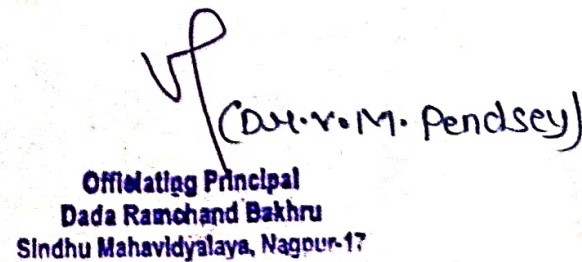 (Dr. V. M. Pendsey)
Officiating Principal
Dada Ramchand Bakhru
Sindhu Mahavidyalaya, Nagpur-17